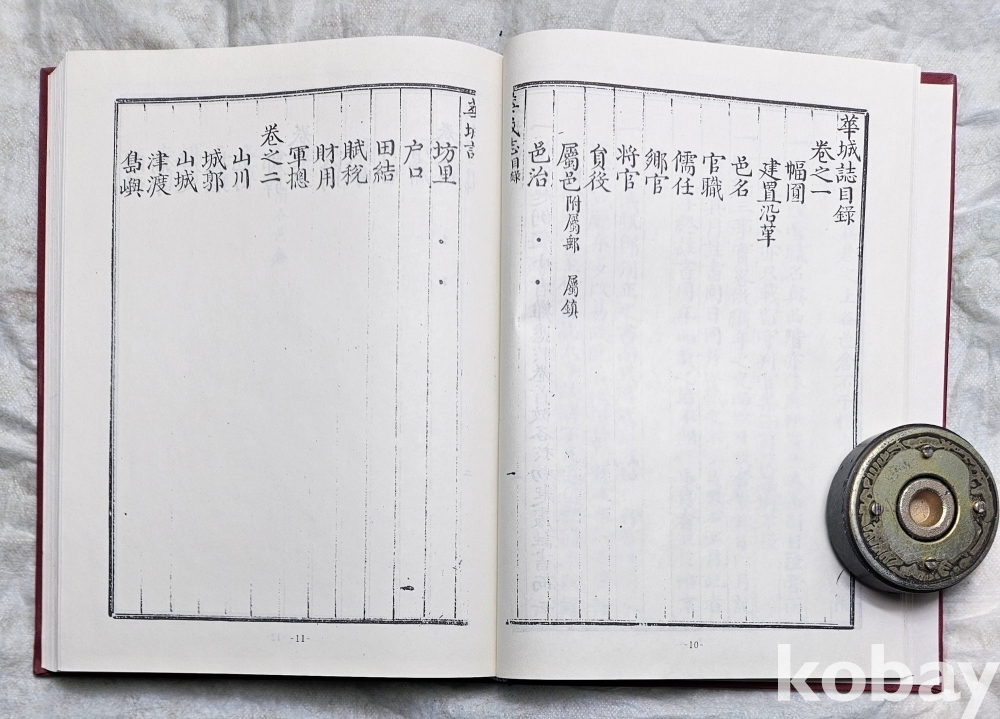 華城誌目錄
卷之一
幅圓
建置沿革
邑名
官職
儒任
鄉官
將官
貟役
屬邑 附屬郵 屬鎮
邑治
華城誌目錄
一
-10-
坊里
户口
田結
賦稅
財用
軍摠
卷之二
山川
城郭
山城
津渡
島嶼
-11-
kobay